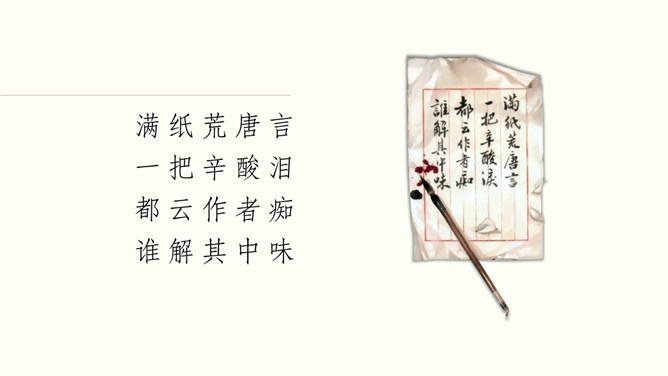 满纸荒唐言
一把辛酸泪
都云作者痴
谁解其中味
滿紙荒唐言
一把辛酸淚
都云作者痴
誰解其中味